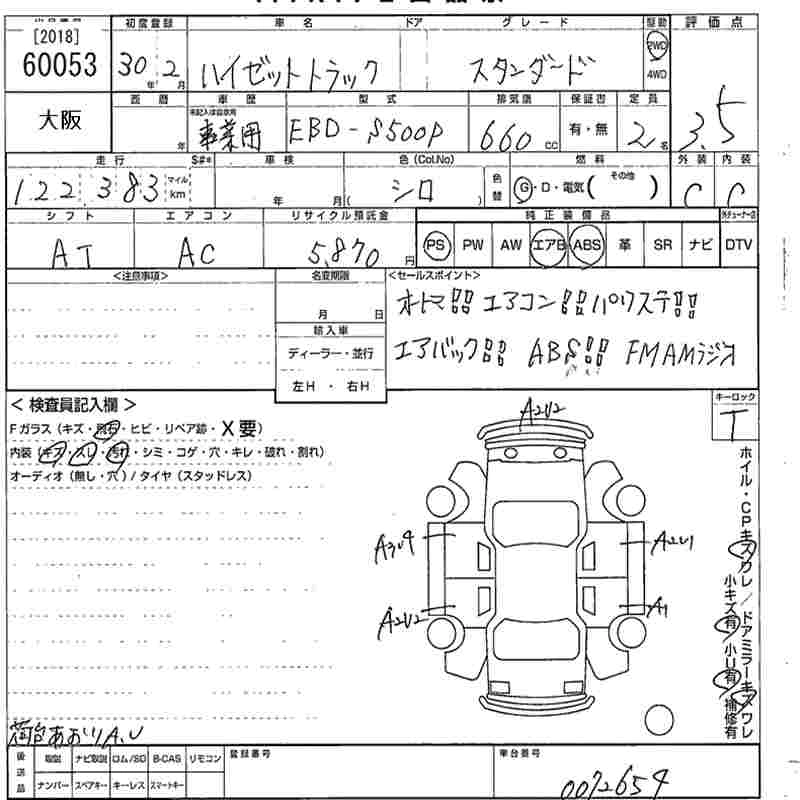 初度登録 車名 ドア グレード 駆動 評価点
[2018]
60053 30年 2月 ハイゼットトラック スタンダード 2WD 4WD 3.5
大阪 西暦 年 車歴 事業用 型式 EBD-S500P 排気量 660 cc 保証書 有・無 定員 2名
走行 122,383 マイル km S#* 車検 年 月 色(Col.No) シロ 色替 燃料 G・D・電気( その他 ) 外装 C 内装 C
シフト AT エアコン AC リサイクル預託金 5,870円 純正装備品 PS PW AW エアB ABS 革 SR ナビ DTV
<注意事項> 名変期限 月 日 <セールスポイント>
オートマ!! エアコン!! パワステ!!
輸入車 エアバック!! ABS!! FMAMラジオ
ディーラー・並行
左H・右H
<検査員記入欄> キーロック
Fガラス(キズ・飛石・ヒビ・リペア跡・X要) T
内装(キズ・スレ・汚れ・シミ・コゲ・穴・キレ・破れ・割れ)
オーディオ(無し・穴)/タイヤ(スタッドレス)
A2U2
A3U9 A2U1
A2U2 A1
ホイル・CPキズワレ/ドアミラーキズワレ
小キズ有 小U有 補修有
荷台あおりA,U
後送品 取説 ナビ取説 ロム/SD B-CAS リモコン 登録番号 車台番号
ナンバー スペアキー キーレス スマートキー 0072654